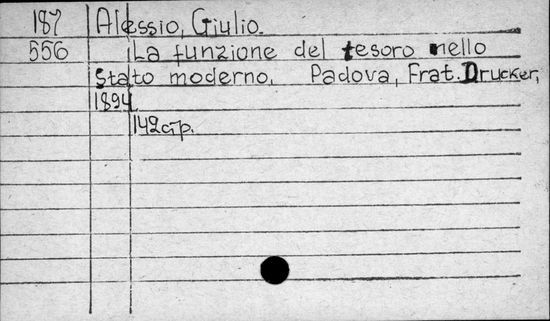 187 Alessio, Giulio.
556 La funzione del tesoro nello
Stato moderno. Padova, Frat. Drucker,
1894
142 p.